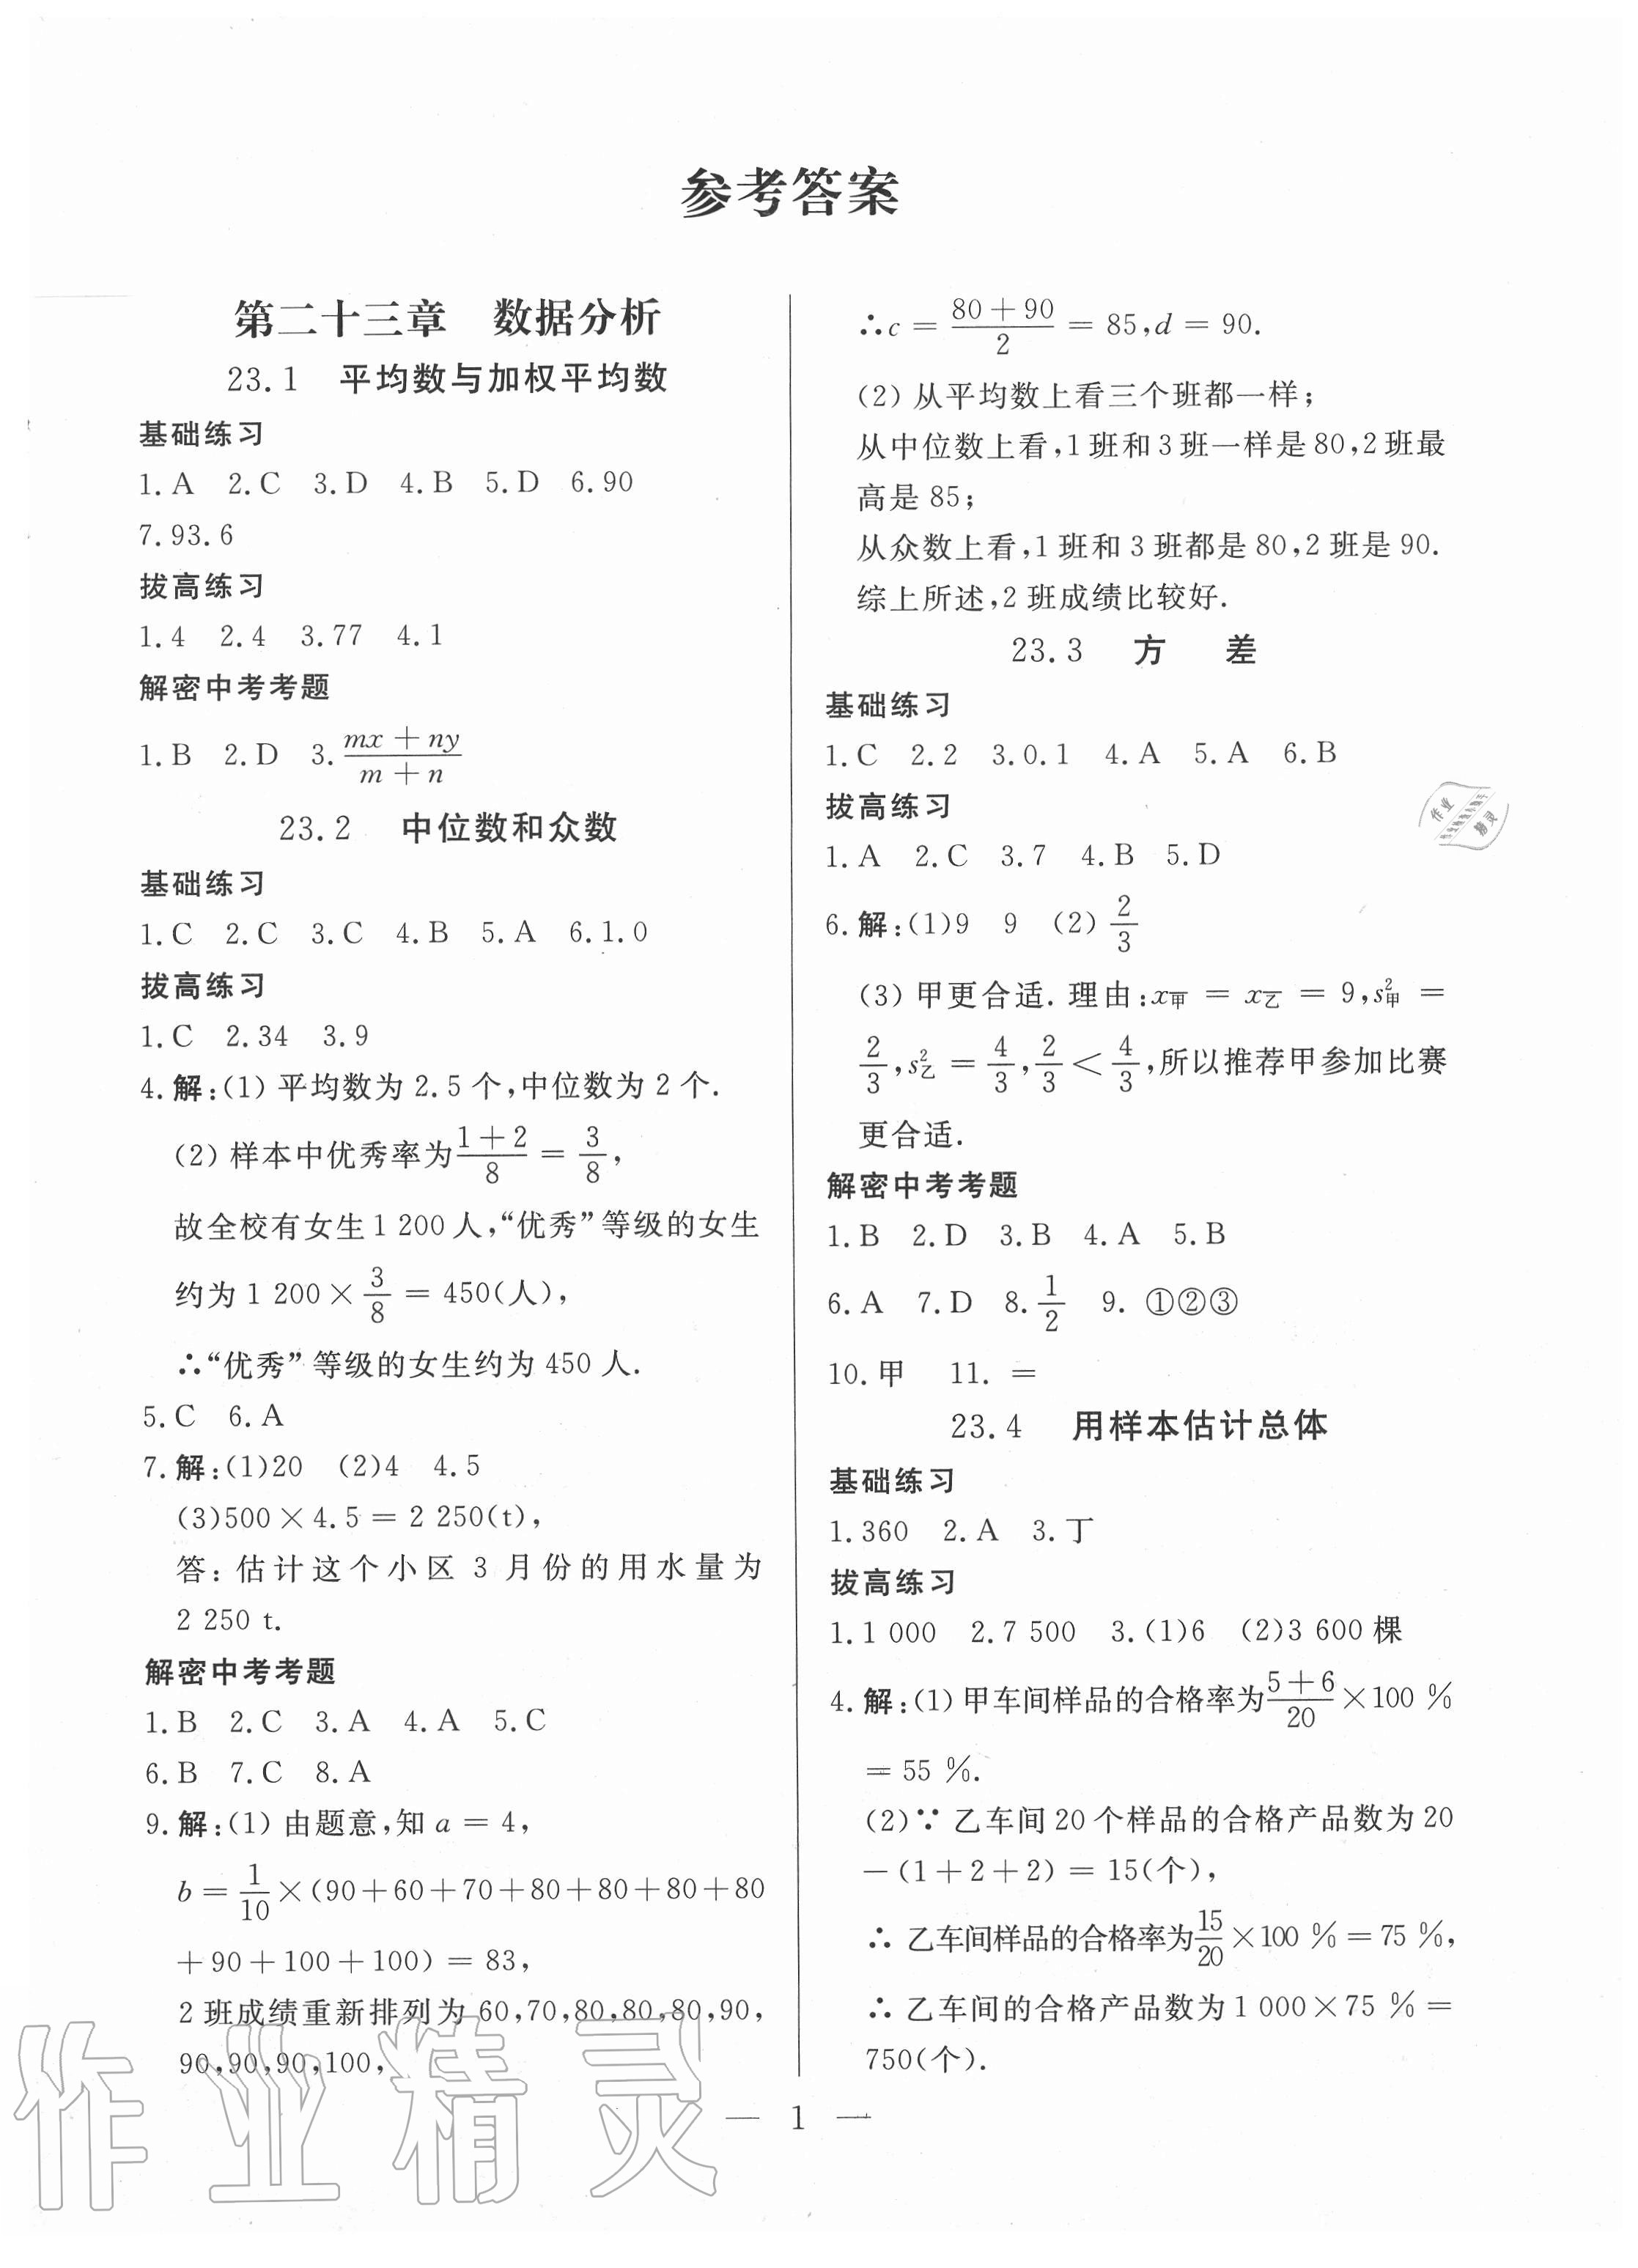 参考答案
第二十三章 数据分析
23.1 平均数与加权平均数
基础练习
1.A 2.C 3.D 4.B 5.D 6.90
7.93.6
拔高练习
1.4 2.4 3.77 4.1
解密中考考题
1.B 2.D 3.\frac{mx+ny}{m+n}
23.2 中位数和众数
基础练习
1.C 2.C 3.C 4.B 5.A 6.1.0
拔高练习
1.C 2.34 3.9
4.解:(1)平均数为2.5个,中位数为2个.
(2)样本中优秀率为\frac{1+2}{8}=\frac{3}{8},
故全校有女生1 200人,“优秀”等级的女生
约为1 200×\frac{3}{8}=450(人),
∴“优秀”等级的女生约为450人.
5.C 6.A
7.解:(1)20 (2)4 4.5
(3)500×4.5=2 250(t),
答:估计这个小区3月份的用水量为
2 250 t.
解密中考考题
1.B 2.C 3.A 4.A 5.C
6.B 7.C 8.A
9.解:(1)由题意,知a=4,
b=\frac{1}{10}×(90+60+70+80+80+80+80
+90+100+100)=83,
2班成绩重新排列为60,70,80,80,80,90,
90,90,90,100,
∴c=\frac{80+90}{2}=85,d=90.
(2)从平均数上看三个班都一样;
从中位数上看,1班和3班一样是80,2班最
高是85;
从众数上看,1班和3班都是80,2班是90.
综上所述,2班成绩比较好.
23.3 方 差
基础练习
1.C 2.2 3.0.1 4.A 5.A 6.B
拔高练习
1.A 2.C 3.7 4.B 5.D
6.解:(1)9 9 (2)\frac{2}{3}
(3)甲更合适.理由:x_甲=x_乙=9,s²_甲=
\frac{2}{3},s²_乙=\frac{4}{3},\frac{2}{3}<\frac{4}{3},所以推荐甲参加比赛
更合适.
解密中考考题
1.B 2.D 3.B 4.A 5.B
6.A 7.D 8.\frac{1}{2} 9.①②③
10.甲 11.=
23.4 用样本估计总体
基础练习
1.360 2.A 3.丁
拔高练习
1.1 000 2.7 500 3.(1)6 (2)3 600棵
4.解:(1)甲车间样品的合格率为\frac{5+6}{20}×100 %
=55 %.
(2)∵乙车间20个样品的合格产品数为20
-(1+2+2)=15(个),
∴乙车间样品的合格率为\frac{15}{20}×100 %=75 %,
∴乙车间的合格产品数为1 000×75 %=
750(个).
— 1 —
作业精灵
作业
精灵